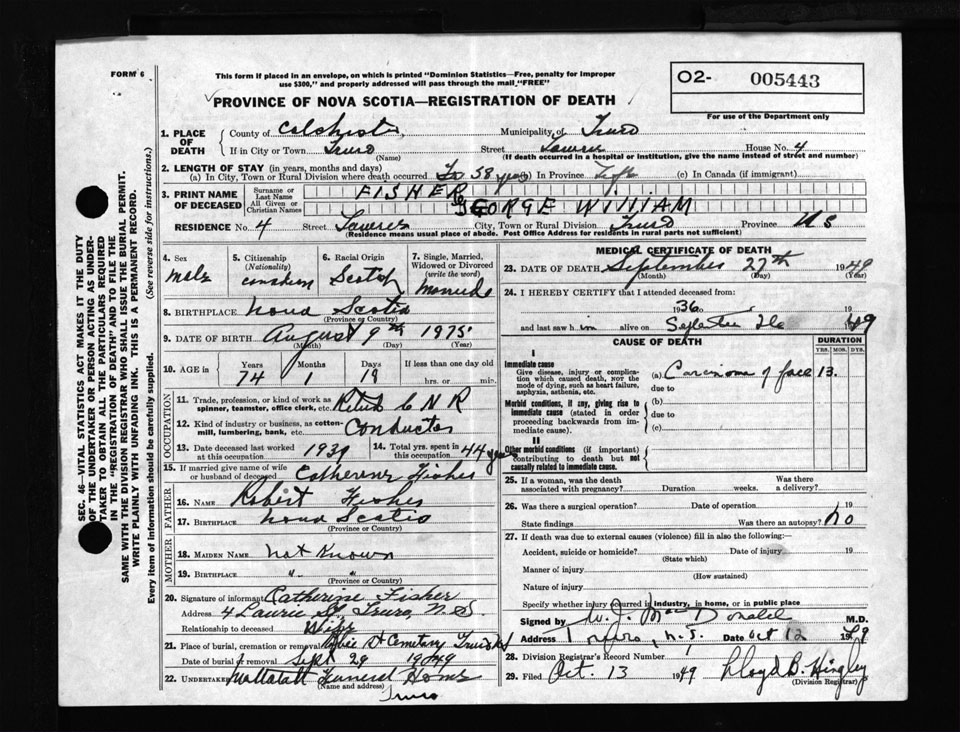 FORM 6
This form if placed in an envelope, on which is printed "Dominion Statistics—Free, penalty for improper
use $300," and properly addressed will pass through the mail "FREE"
O2- 005443
For use of the Department only
PROVINCE OF NOVA SCOTIA—REGISTRATION OF DEATH
1. PLACE OF DEATH
County of Colchester Municipality of Truro
If in City or Town Truro Street House No. 4
(Name) (If death occurred in a hospital or institution, give the name instead of street and number)
2. LENGTH OF STAY (in years, months and days)
(a) In City, Town or Rural Division where death occurred 58 yrs (b) In Province Life (c) In Canada (if immigrant)
3. PRINT NAME OF DECEASED
Surname or Last Name FISHER
All Given or Christian Names GEORGE WILLIAM
RESIDENCE No. 4 Street City, Town or Rural Division Truro Province N S
(Residence means usual place of abode. Post Office Address for residents in rural parts not sufficient)
4. Sex Male
5. Citizenship (Nationality)
6. Racial Origin Scotch
7. Single, Married, Widowed or Divorced (write the word) Married
8. BIRTHPLACE Nova Scotia
(Province or Country)
9. DATE OF BIRTH August 9th 1875
(Month) (Day) (Year)
10. AGE in Years Months Days If less than one day old
74 1 18 hrs. or min.
OCCUPATION
11. Trade, profession or kind of work as spinner, teamster, office clerk, etc. Retired C N R
12. Kind of industry or business, as cotton-mill, lumbering, bank, etc. Conductor
13. Date deceased last worked at this occupation 1939
14. Total yrs. spent in this occupation 44 years
15. If married give name of wife or husband of deceased Catherine Fisher
FATHER
16. NAME Robert Fisher
17. BIRTHPLACE Nova Scotia
(Province or Country)
MOTHER
18. MAIDEN NAME Not Known
19. BIRTHPLACE " "
(Province or Country)
20. Signature of informant Catherine Fisher
Address 4 Laurie St Truro, N.S.
Relationship to deceased Wife
21. Place of burial, cremation or removal Cemetery Truro N S
Date of burial or removal Sept 29 1949
22. UNDERTAKER Mattatall Funeral Home
(Name and address) Truro
MEDICAL CERTIFICATE OF DEATH
23. DATE OF DEATH September 27th 1949
(Month) (Day) (Year)
24. I HEREBY CERTIFY that I attended deceased from:
1936 to 19
and last saw him alive on 1949
CAUSE OF DEATH
DURATION
YRS. MOS. DYS.
I
Immediate cause
Give disease, injury or complication which caused death, NOT the mode of dying, such as heart failure, asphyxia, asthenia, etc.
(a) Carcinoma of face 13.
due to
Morbid conditions, if any, giving rise to immediate cause (stated in order proceeding backwards from immediate cause).
(b)
due to
(c)
II
Other morbid conditions (if important) contributing to death but not causally related to immediate cause.
25. If a woman, was the death associated with pregnancy? Duration weeks. Was there a delivery?
26. Was there a surgical operation? Date of operation 19
State findings Was there an autopsy? No
27. If death was due to external causes (violence) fill in also the following:—
Accident, suicide or homicide? Date of injury 19
(State which)
Manner of injury
(How sustained)
Nature of injury
Specify whether injury occurred in industry, in home, or in public place
Signed by W. J. MacDonald M.D.
Address Truro, N.S. Date Oct 12 1949
28. Division Registrar's Record Number
29. Filed Oct. 13 1949 Lloyd B. Hingley
(Division Registrar)
SEC. 46—VITAL STATISTICS ACT MAKES IT THE DUTY
OF THE UNDERTAKER OR PERSON ACTING AS UNDERTAKER
TO OBTAIN ALL THE PARTICULARS REQUIRED
IN THE "REGISTRATION OF DEATH" AND TO FILE THE
SAME WITH THE DIVISION REGISTRAR WHO SHALL ISSUE THE BURIAL PERMIT.
WRITE PLAINLY WITH UNFADING INK. THIS IS A PERMANENT RECORD.
Every item of information should be carefully supplied. (See reverse side for instructions.)